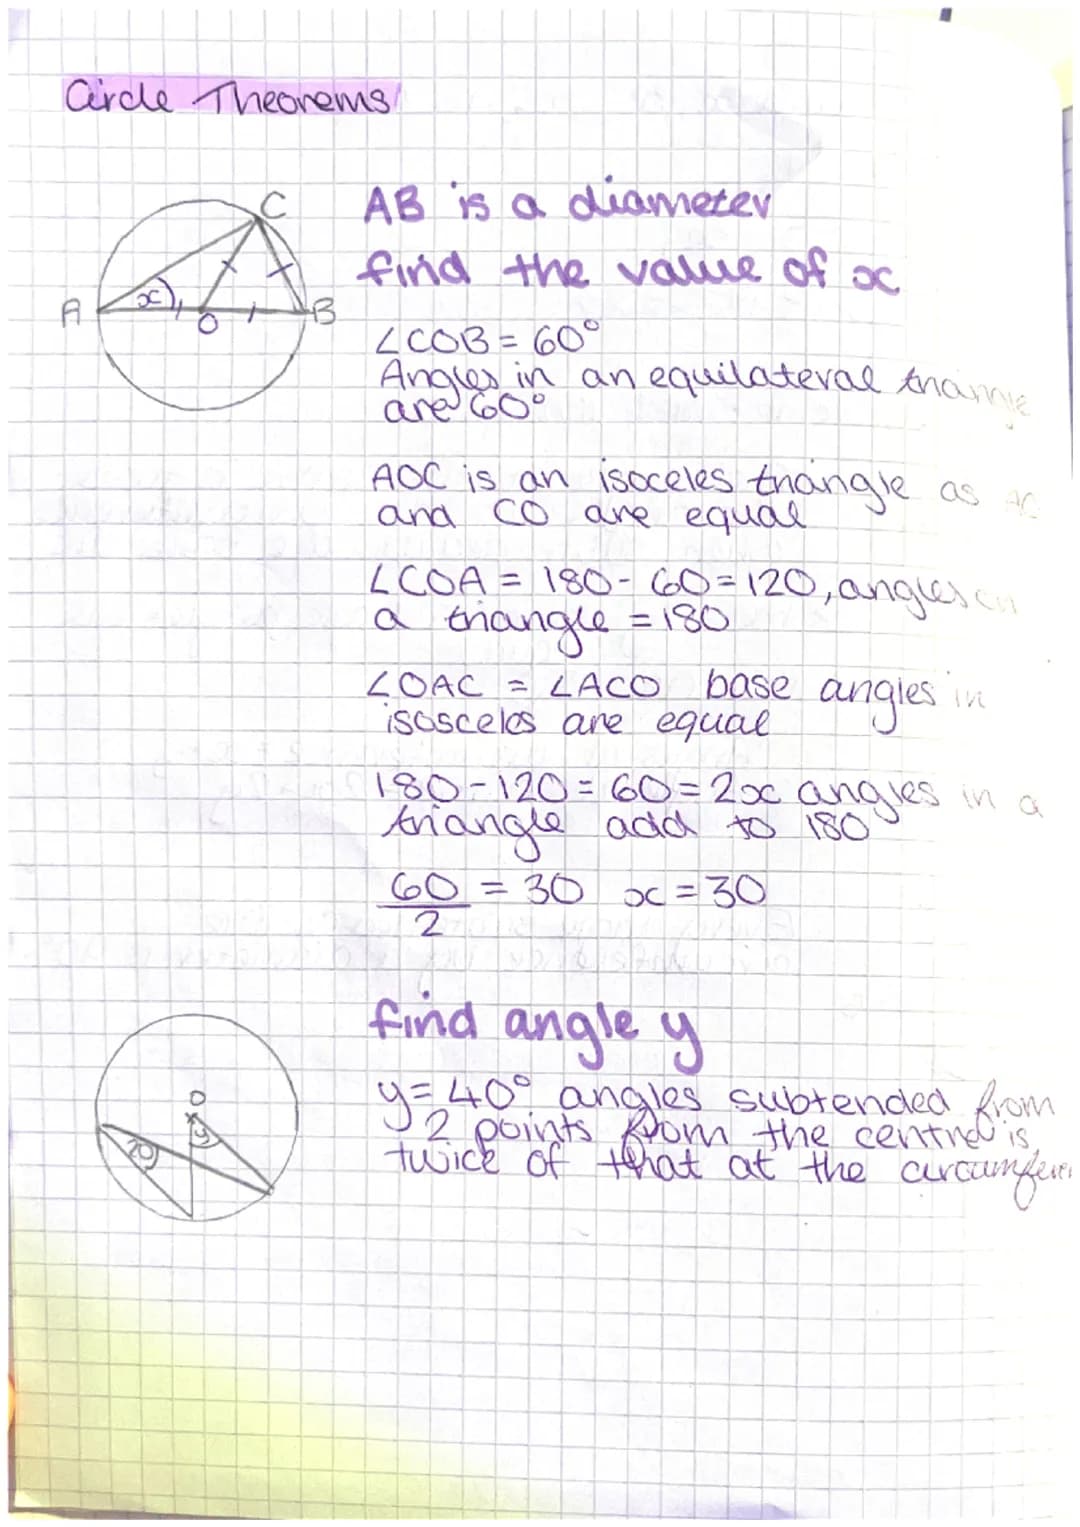 Circle Theorems
C
AB is a diameter
find the value of x
A
x
O
B
∠COB = 60°
Angles in an equilateral triangle
are 60°
AOC is an isoceles triangle as
and CO are equal
∠COA = 180 - 60 = 120, angles on
a triangle = 180
∠OAC = ∠ACO base angles in
isosceles are equal
180 - 120 = 60 = 2x angles in a
triangle add to 180
60/2 = 30 x = 30
find angle y
O
y
20
y = 40° angles subtended from
2 points from the centre is
twice of that at the circumferen